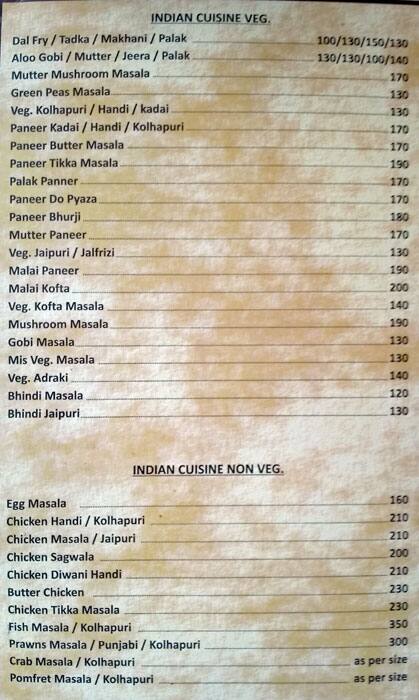 INDIAN CUISINE VEG.
Dal Fry / Tadka / Makhani / Palak 100/130/150/130
Aloo Gobi / Mutter / Jeera / Palak 130/130/100/140
Mutter Mushroom Masala 170
Green Peas Masala 130
Veg. Kolhapuri / Handi / kadai 130
Paneer Kadai / Handi / Kolhapuri 170
Paneer Butter Masala 170
Paneer Tikka Masala 190
Palak Panner 170
Paneer Do Pyaza 170
Paneer Bhurji 180
Mutter Paneer 170
Veg. Jaipuri / Jalfrizi 130
Malai Paneer 190
Malai Kofta 200
Veg. Kofta Masala 140
Mushroom Masala 190
Gobi Masala 130
Mis Veg. Masala 130
Veg. Adraki 140
Bhindi Masala 120
Bhindi Jaipuri 130
INDIAN CUISINE NON VEG.
Egg Masala 160
Chicken Handi / Kolhapuri 210
Chicken Masala / Jaipuri 210
Chicken Sagwala 200
Chicken Diwani Handi 210
Butter Chicken 230
Chicken Tikka Masala 230
Fish Masala / Kolhapuri 350
Prawns Masala / Punjabi / Kolhapuri 300
Crab Masala / Kolhapuri as per size
Pomfret Masala / Kolhapuri as per size